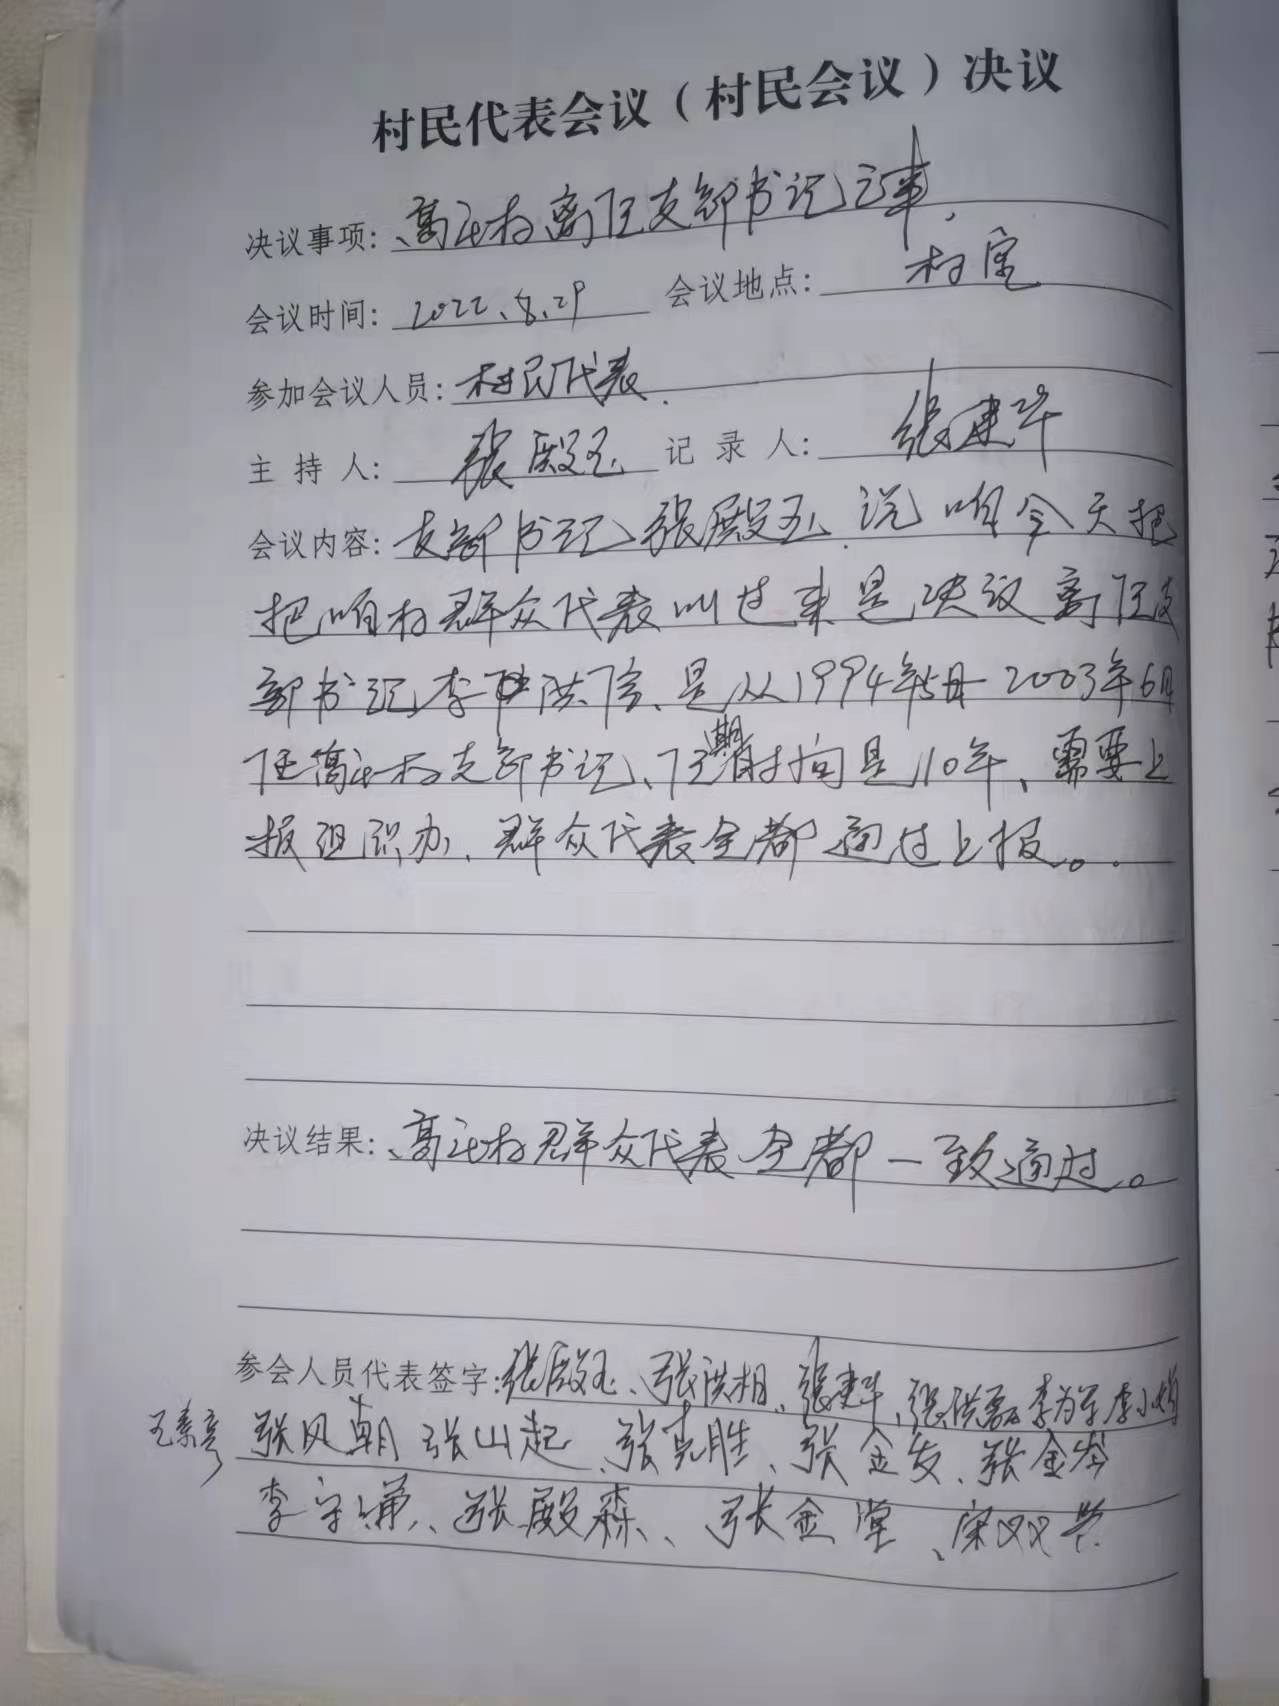 村民代表会议（村民会议）决议
决议事项：高庄村离任支部书记之事.
会议时间：2022.8.29 会议地点：村室
参加会议人员：村民代表.
主持人：张殿玉 记录人：张建华
会议内容：支部书记张殿玉.说咱今天把
把咱村群众代表叫过来是决议离任支
部书记李洪信、是从1994年5月-2003年6月
任高庄村支部书记、任期时间是10年、需要上
报组织办、群众代表全都通过上报。.
决议结果：高庄村群众代表全都一致通过。
参会人员代表签字：张殿玉、张洪相、张建华、张洪磊 李为军 李小娟
王素彦 张风朝 张山起、张克胜、张金发、张金岑
李守谦、张殿森、张金堂、宋双兴